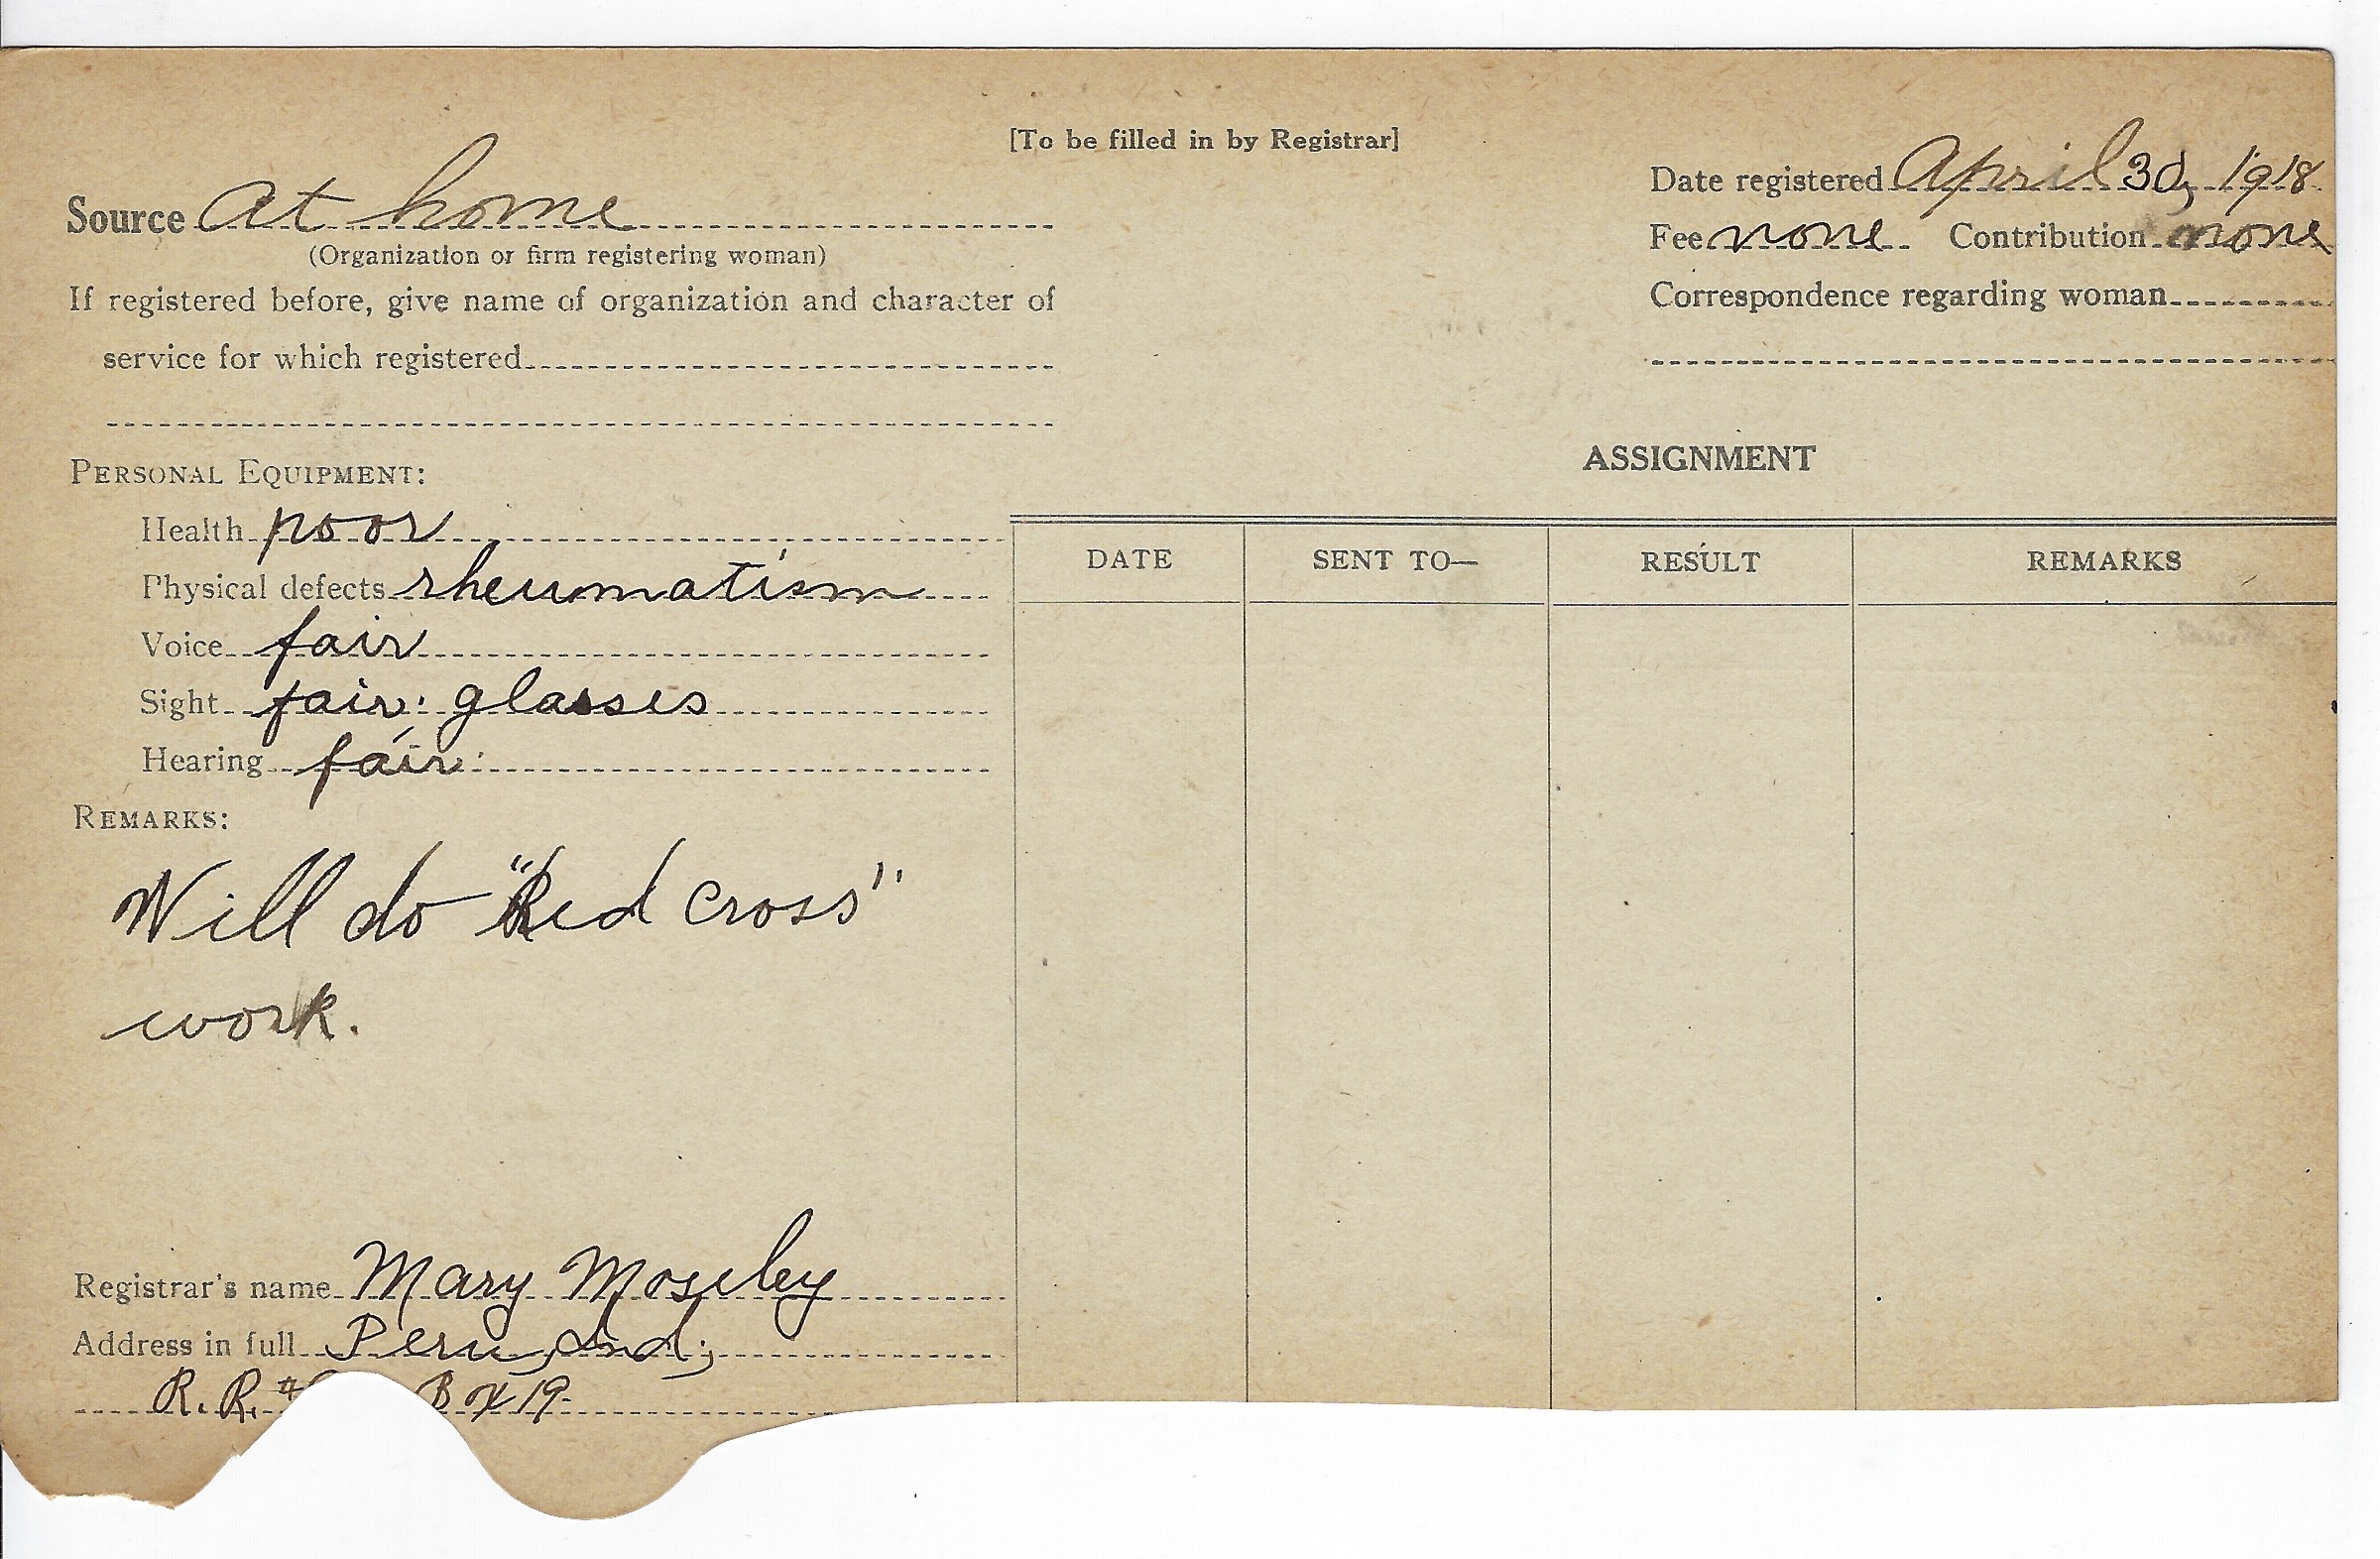 [To be filled in by Registrar]
Source At home
(Organization or firm registering woman)
If registered before, give name of organization and character of
service for which registered
Date registered April 30, 1918.
Fee none Contribution none
Correspondence regarding woman
PERSONAL EQUIPMENT:
Health poor
Physical defects rheumatism
Voice fair
Sight fair: glasses
Hearing fair
REMARKS:
Will do "Red Cross"
work.
Registrar's name Mary Moseley
Address in full Peru, Ind;
R. R. # Box 19
ASSIGNMENT
DATE SENT TO— RESULT REMARKS